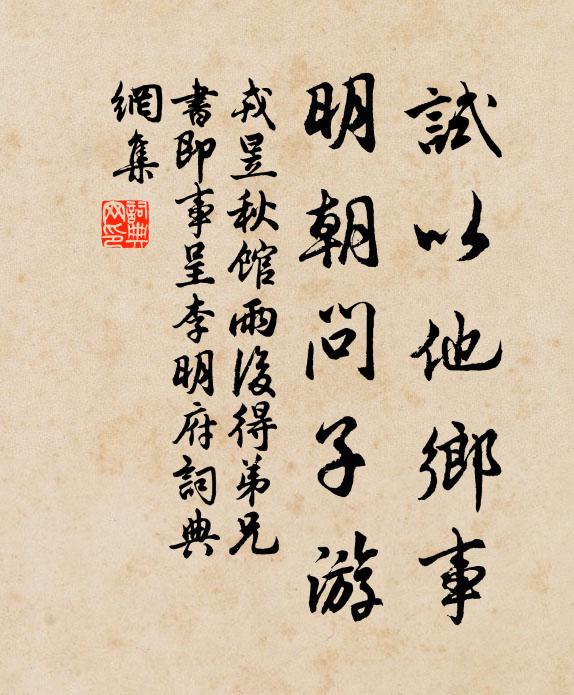 試以他鄉事
明朝問子游
戎昱秋館雨後得弟兄
書即事呈李明府詞典
網集
詞典
网印